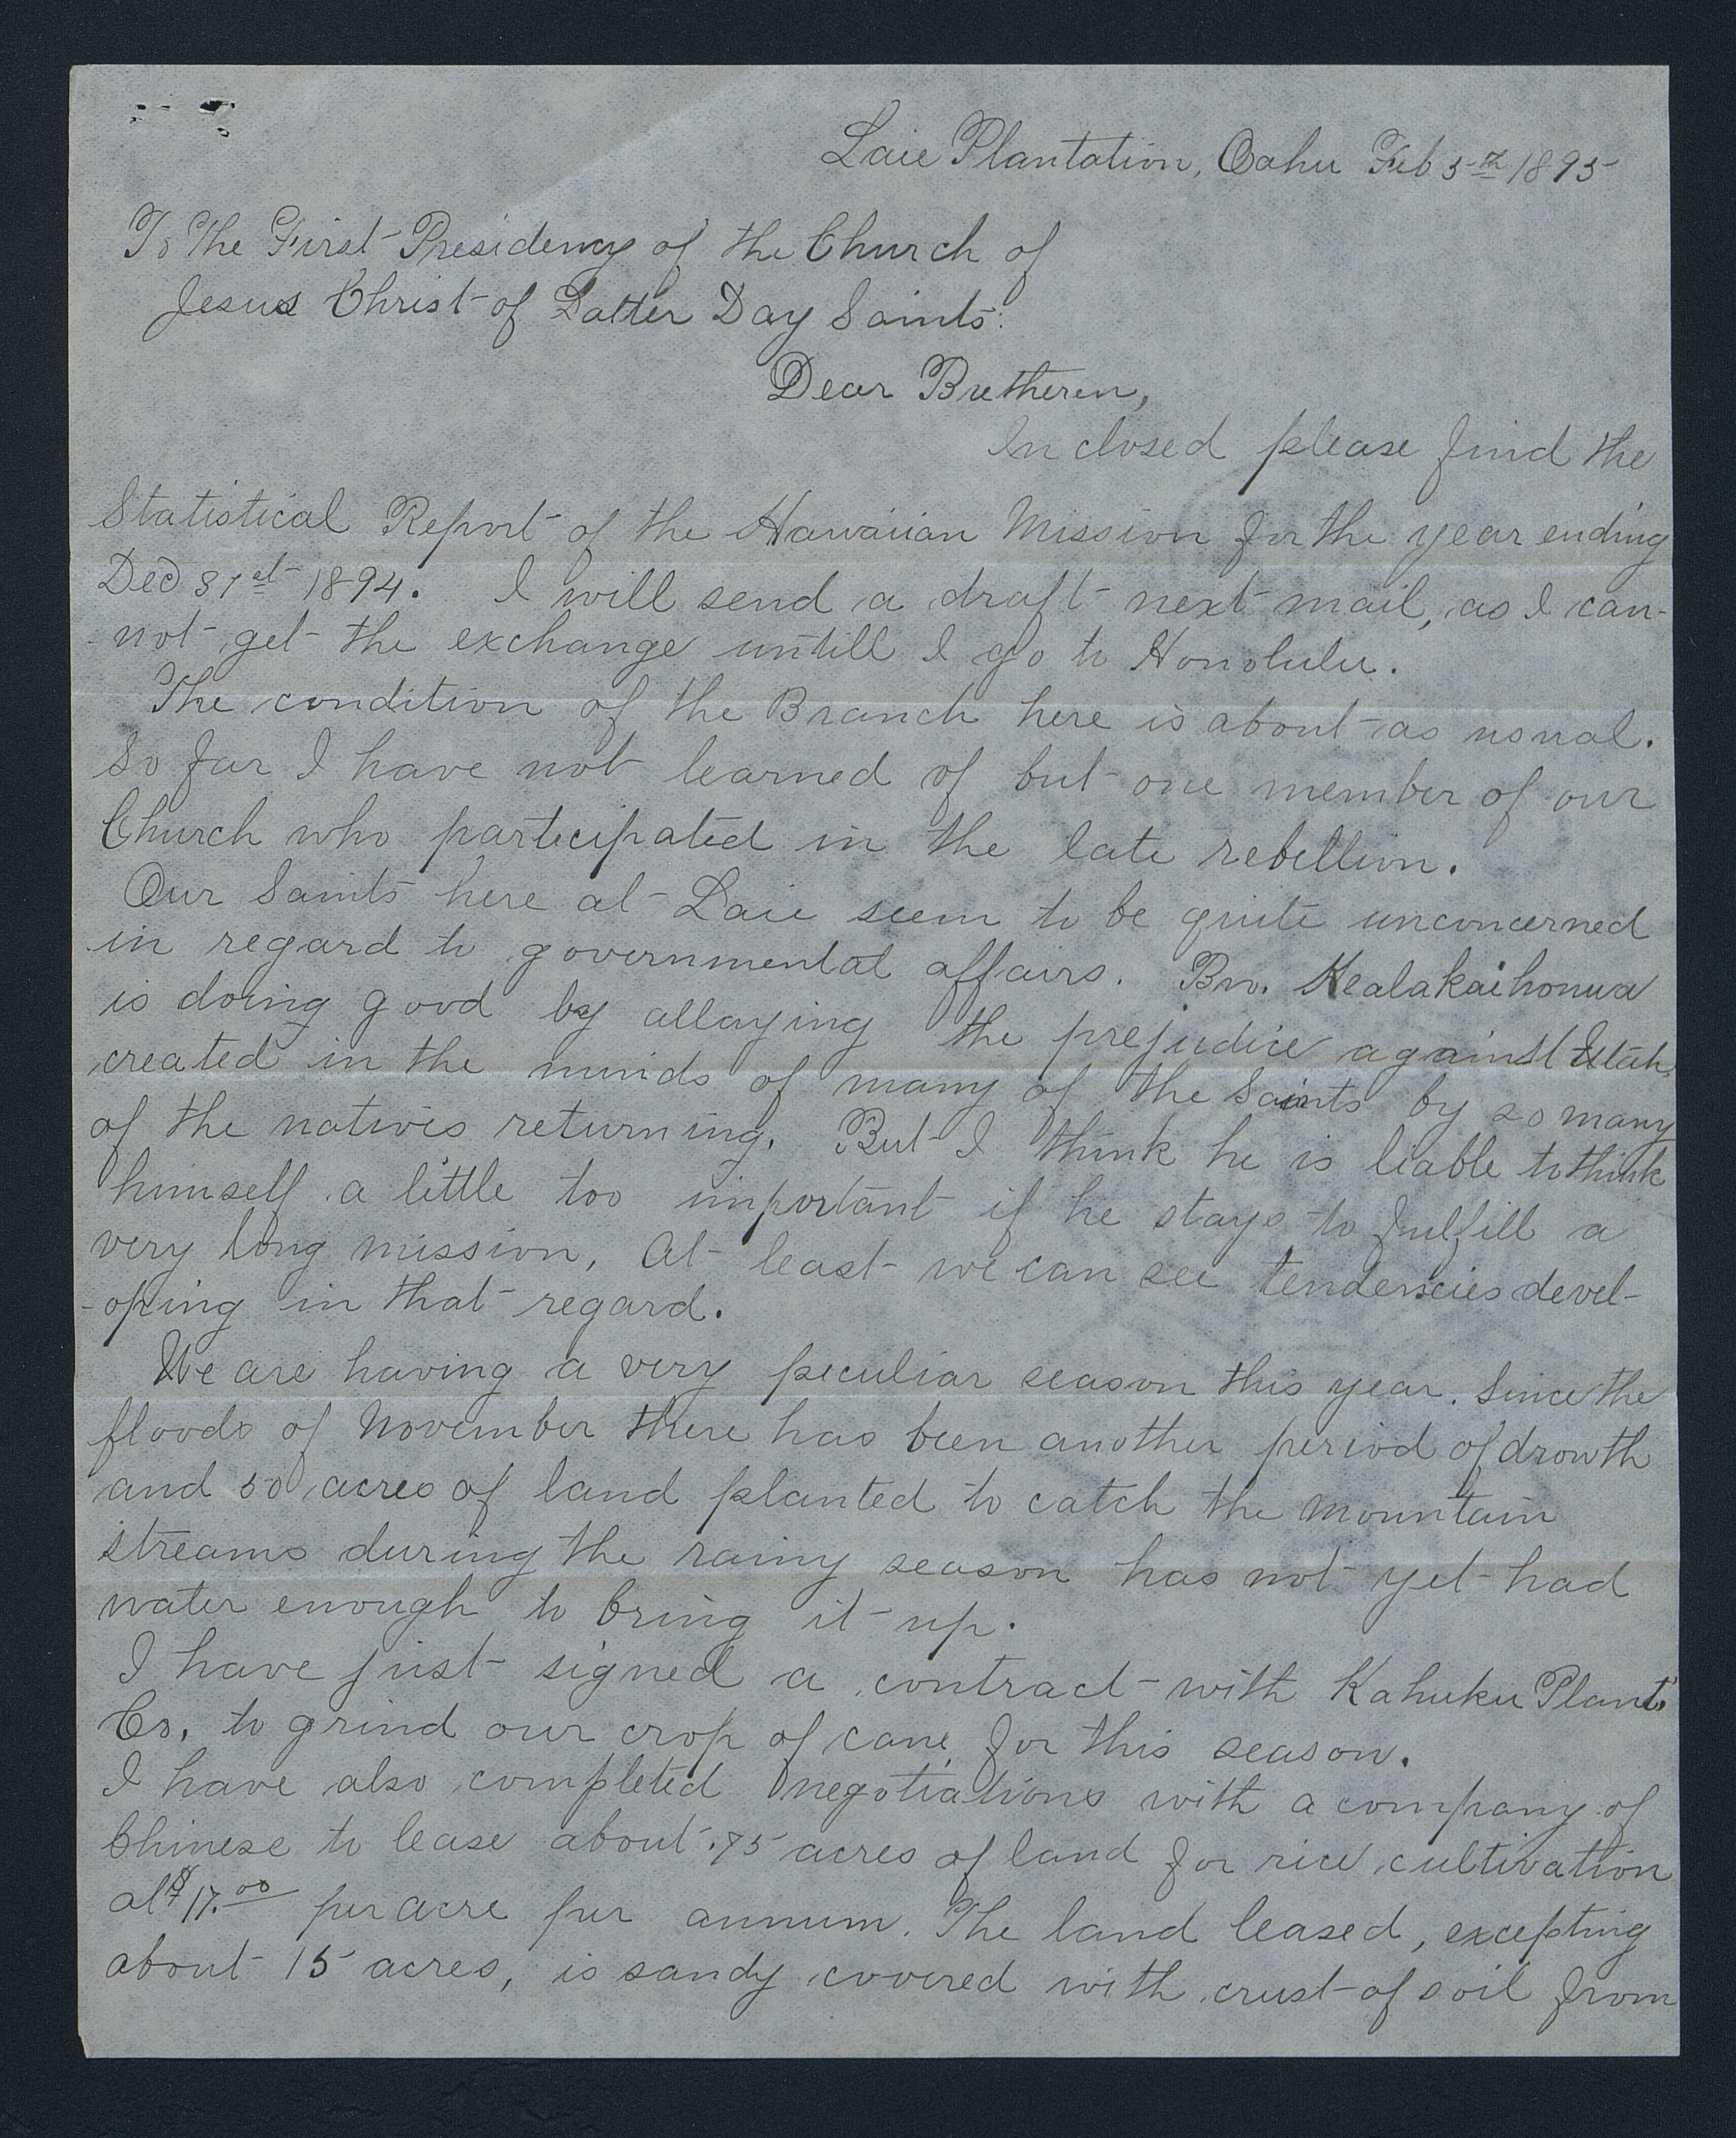 Laie Plantation, Oahu Feb 5th 1895
To The First Presidency of the Church of
Jesus Christ of Latter Day Saints:
Dear Bretheren,
Inclosed please find the
Statistical Report of the Hawaiian Mission for the year ending
Dec 31st 1894. I will send a draft next mail, as I can-
-not get the exchange untill I go to Honolulu.
The condition of the Branch here is about as usual.
So far I have not learned of but one member of our
Church who participated in the late rebellion.
Our Saints here at Laie seem to be quite unconcerned
in regard to governmental affairs. Bro. Kealakaihonua
is doing good by allaying the prejudice against Utah,
created in the minds of many of the Saints by so many
of the natives returning. But I think he is liable to think
himself a little too important if he stays to fulfill a
very long mission, At least we can see tendencies devel-
-oping in that regard.
We are having a very peculiar season this year. Since the
floods of November there has been another period of drowth
and 50 acres of land planted to catch the mountain
streams during the rainy season has not yet had
water enough to bring it up.
I have just signed a contract with Kahuku Plant.
Co. to grind our crop of cane for this season.
I have also completed negotiations with a company of
Chinese to lease about 75 acres of land for rice cultivation
at $17.00 per acre per annum. The land leased, excepting
about 15 acres, is sandy covered with crust of soil from